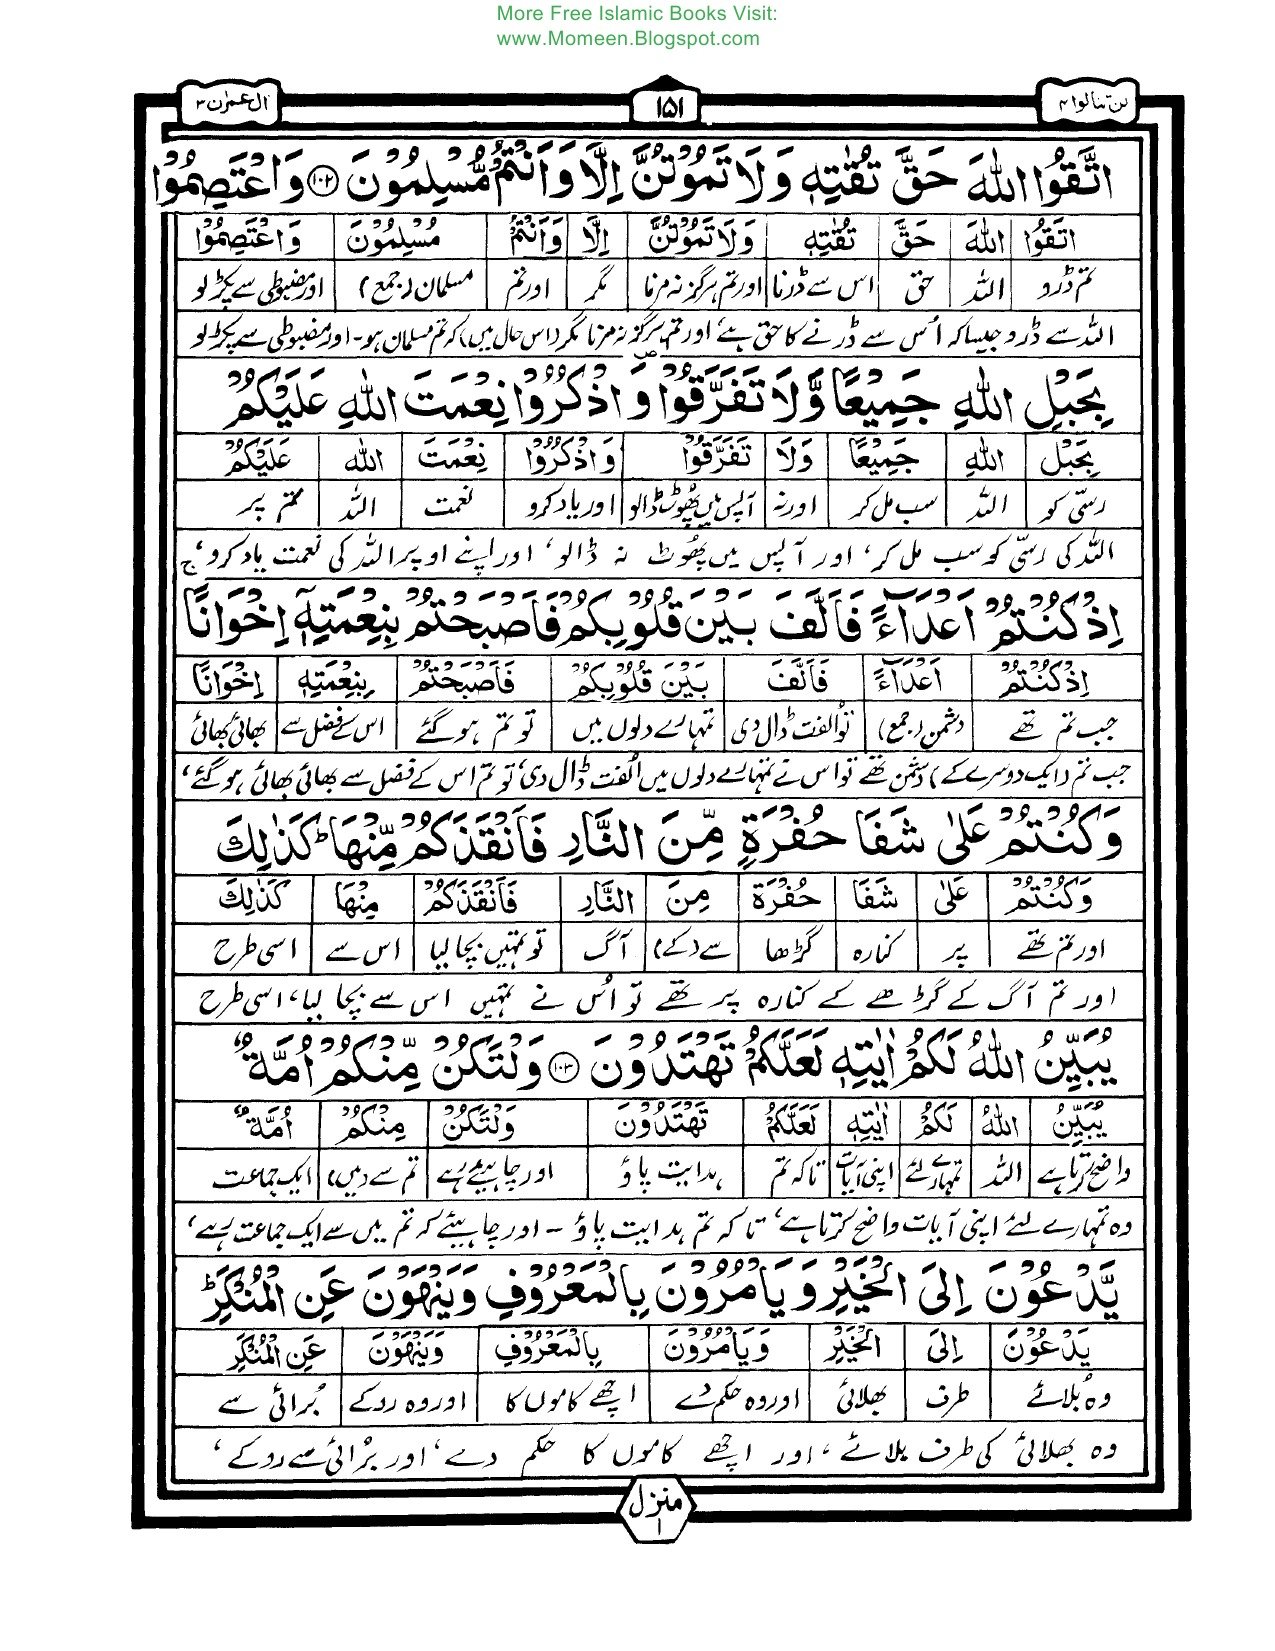 More Free Islamic Books Visit:
www.Momeen.Blogspot.com
لن تنالوا ۴ ۱۵۱ اٰل عمرٰن ۳
اتَّقُوا اللّٰهَ حَقَّ تُقٰىتِهٖ وَلَا تَمُوْتُنَّ اِلَّا وَاَنْتُمْ مُّسْلِمُوْنَ ۝۱۰۲ وَاعْتَصِمُوْا
اتَّقُوا اللّٰهَ حَقَّ تُقٰىتِهٖ وَلَا تَمُوْتُنَّ اِلَّا وَاَنْتُمْ مُسْلِمُوْنَ وَاعْتَصِمُوْا
تم ڈرو اللہ حق اس سے ڈرنا اور تم ہرگز نہ مرنا مگر اور تم مسلمان (جمع) اور مضبوطی سے پکڑ لو
اللہ سے ڈرو جیسا کہ اُس سے ڈرنے کا حق ہے، اور تم ہرگز نہ مرنا مگر (اس حال میں) کہ تم مسلمان ہو۔ اور مضبوطی سے پکڑ لو
بِحَبْلِ اللّٰهِ جَمِيْعًا وَّلَا تَفَرَّقُوْا ۪ وَاذْكُرُوْا نِعْمَتَ اللّٰهِ عَلَيْكُمْ
بِحَبْلِ اللّٰهِ جَمِيْعًا وَلَا تَفَرَّقُوْا وَاذْكُرُوْا نِعْمَتَ اللّٰهِ عَلَيْكُمْ
رسّی کو اللہ سب مل کر اور نہ آپس میں پھوٹ ڈالو اور یاد کرو نعمت اللہ تم پر
اللہ کی رسّی کو سب مل کر، اور آپس میں پھُوٹ نہ ڈالو، اور اپنے اوپر اللہ کی نعمت یاد کرو،
اِذْ كُنْتُمْ اَعْدَآءً فَاَلَّفَ بَيْنَ قُلُوْبِكُمْ فَاَصْبَحْتُمْ بِنِعْمَتِهٖۤ اِخْوَانًا ۚ
اِذْ كُنْتُمْ اَعْدَآءً فَاَلَّفَ بَيْنَ قُلُوْبِكُمْ فَاَصْبَحْتُمْ بِنِعْمَتِهٖ اِخْوَانًا
جب تم تھے دشمن (جمع) تو الفت ڈال دی تمہارے دلوں میں تو تم ہو گئے اس کے فضل سے بھائی بھائی
جب تم (ایک دوسرے کے) دشمن تھے تو اس نے تمہارے دلوں میں اُلفت ڈال دی، تو تم اس کے فضل سے بھائی بھائی ہو گئے،
وَكُنْتُمْ عَلٰى شَفَا حُفْرَةٍ مِّنَ النَّارِ فَاَنْقَذَكُمْ مِّنْهَا ؕ كَذٰلِكَ
وَكُنْتُمْ عَلٰى شَفَا حُفْرَةٍ مِنَ النَّارِ فَاَنْقَذَكُمْ مِنْهَا كَذٰلِكَ
اور تم تھے پر کنارہ گڑھا سے (کے) آگ تو تمہیں بچا لیا اس سے اسی طرح
اور تم آگ کے گڑھے کے کنارہ پر تھے تو اُس نے تمہیں اس سے بچا لیا، اسی طرح
يُبَيِّنُ اللّٰهُ لَكُمْ اٰيٰتِهٖ لَعَلَّكُمْ تَهْتَدُوْنَ ۝۱۰۳ وَلْتَكُنْ مِّنْكُمْ اُمَّةٌ
يُبَيِّنُ اللّٰهُ لَكُمْ اٰيٰتِهٖ لَعَلَّكُمْ تَهْتَدُوْنَ وَلْتَكُنْ مِنْكُمْ اُمَّةٌ
واضح کرتا ہے اللہ تمہارے لئے اپنی آیات تاکہ تم ہدایت پاؤ اور چاہیئے رہے تم سے (میں) ایک جماعت
وہ تمہارے لئے اپنی آیات واضح کرتا ہے، تا کہ تم ہدایت پاؤ - اور چاہیئے کہ تم میں سے ایک جماعت رہے،
يَّدْعُوْنَ اِلَى الْخَيْرِ وَيَاْمُرُوْنَ بِالْمَعْرُوْفِ وَيَنْهَوْنَ عَنِ الْمُنْكَرِ ؕ
يَدْعُوْنَ اِلَى الْخَيْرِ وَيَاْمُرُوْنَ بِالْمَعْرُوْفِ وَيَنْهَوْنَ عَنِ الْمُنْكَرِ
وہ بُلائے طرف بھلائی اور وہ حکم دے اچھے کاموں کا اور وہ روکے بُرائی سے
وہ بھلائی کی طرف بلائے، اور اچھے کاموں کا حکم دے، اور برُائی سے روکے،
منزل
۱